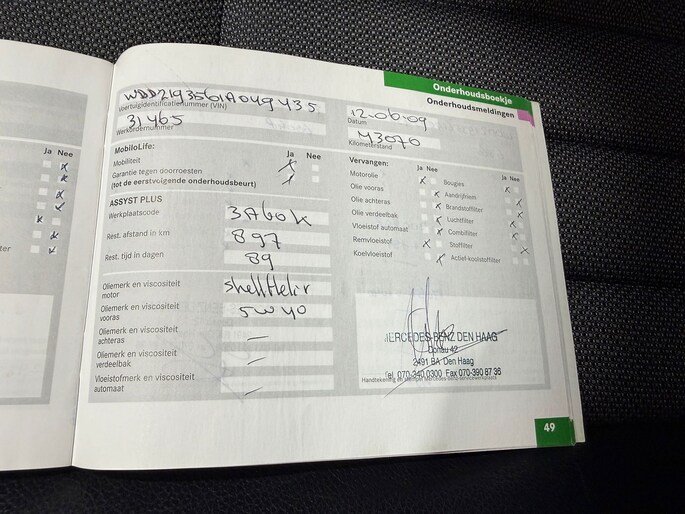 Onderhoudsboekje
Onderhoudsmeldingen
WDD2193561A049435
Voertuigidentificatienummer (VIN)
31465
Werkordernummer
12-06-09
Datum
43070
Kilometerstand
MobiloLife:
Ja Nee
Mobiliteit
Garantie tegen doorroesten
(tot de eerstvolgende onderhoudsbeurt)
ASSYST PLUS
Werkplaatscode
3A60K
Rest. afstand in km
897
Rest. tijd in dagen
89
Oliemerk en viscositeit
motor
Shell Helix
Oliemerk en viscositeit
vooras
5W40
Oliemerk en viscositeit
achteras
Oliemerk en viscositeit
verdeelbak
Vloeistofmerk en viscositeit
automaat
Vervangen:
Ja Nee
Ja Nee
Motorolie
Bougies
Olie vooras
Aandrijfriem
Olie achteras
Brandstoffilter
Olie verdeelbak
Luchtfilter
Vloeistof automaat
Combifilter
Remvloeistof
Stoffilter
Koelvloeistof
Actief-koolstoffilter
MERCEDES-BENZ DEN HAAG
Donau 42
2491 BA Den Haag
Tel. 070-340 0300 Fax 070-390 87 36
Handtekening en stempel Mercedes-Benz-servicewerkplaats
49
Ja Nee
ter